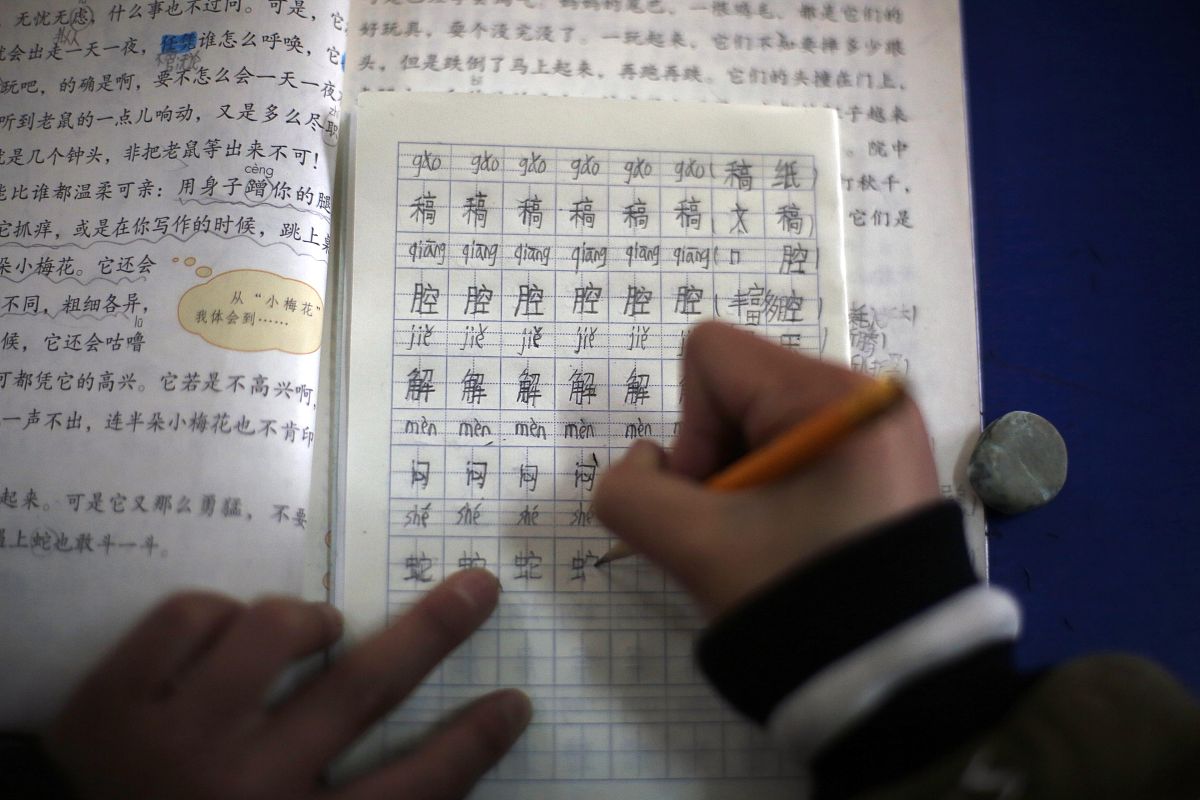 无忧无虑,什么事也不过问。可是,它
就会出走一天一夜,任凭谁怎么呼唤,它
玩吧,的确是啊,要不怎么会一天一夜
听到老鼠的一点儿响动,又是多么尽职
就是几个钟头,非把老鼠等出来不可!
cèng
能比谁都温柔可亲:用身子蹭你的腿
它抓痒,或是在你写作的时候,跳上
朵小梅花。它还会
不同,粗细各异,
lū
候,它还会咕噜
可都凭它的高兴。它若是不高兴啊,
一声不出,连半朵小梅花也不肯印
起来。可是它又那么勇猛,不要
上蛇也敢斗一斗。
从“小梅花”
我体会到……
好玩具,耍个没完没了。一玩起来,它们不知要摔多少跟
头,但是跌倒了马上起来,再跑再跌。它们的头撞在门上,
子越来
。院中
打秋千,
它们是
gǎo gǎo gǎo gǎo gǎo gǎo (稿 纸)
稿 稿 稿 稿 稿 稿 (文 稿)
qiāng qiāng qiāng qiāng qiāng qiāng (口 腔)
腔 腔 腔 腔 腔 腔
jiě jiě jiě jiě jiě
解 解 解 解 解
mèn mèn mèn mèn mèn
闷 闷 闷 闷
shé shé shé shé
蛇 蛇 蛇 蛇